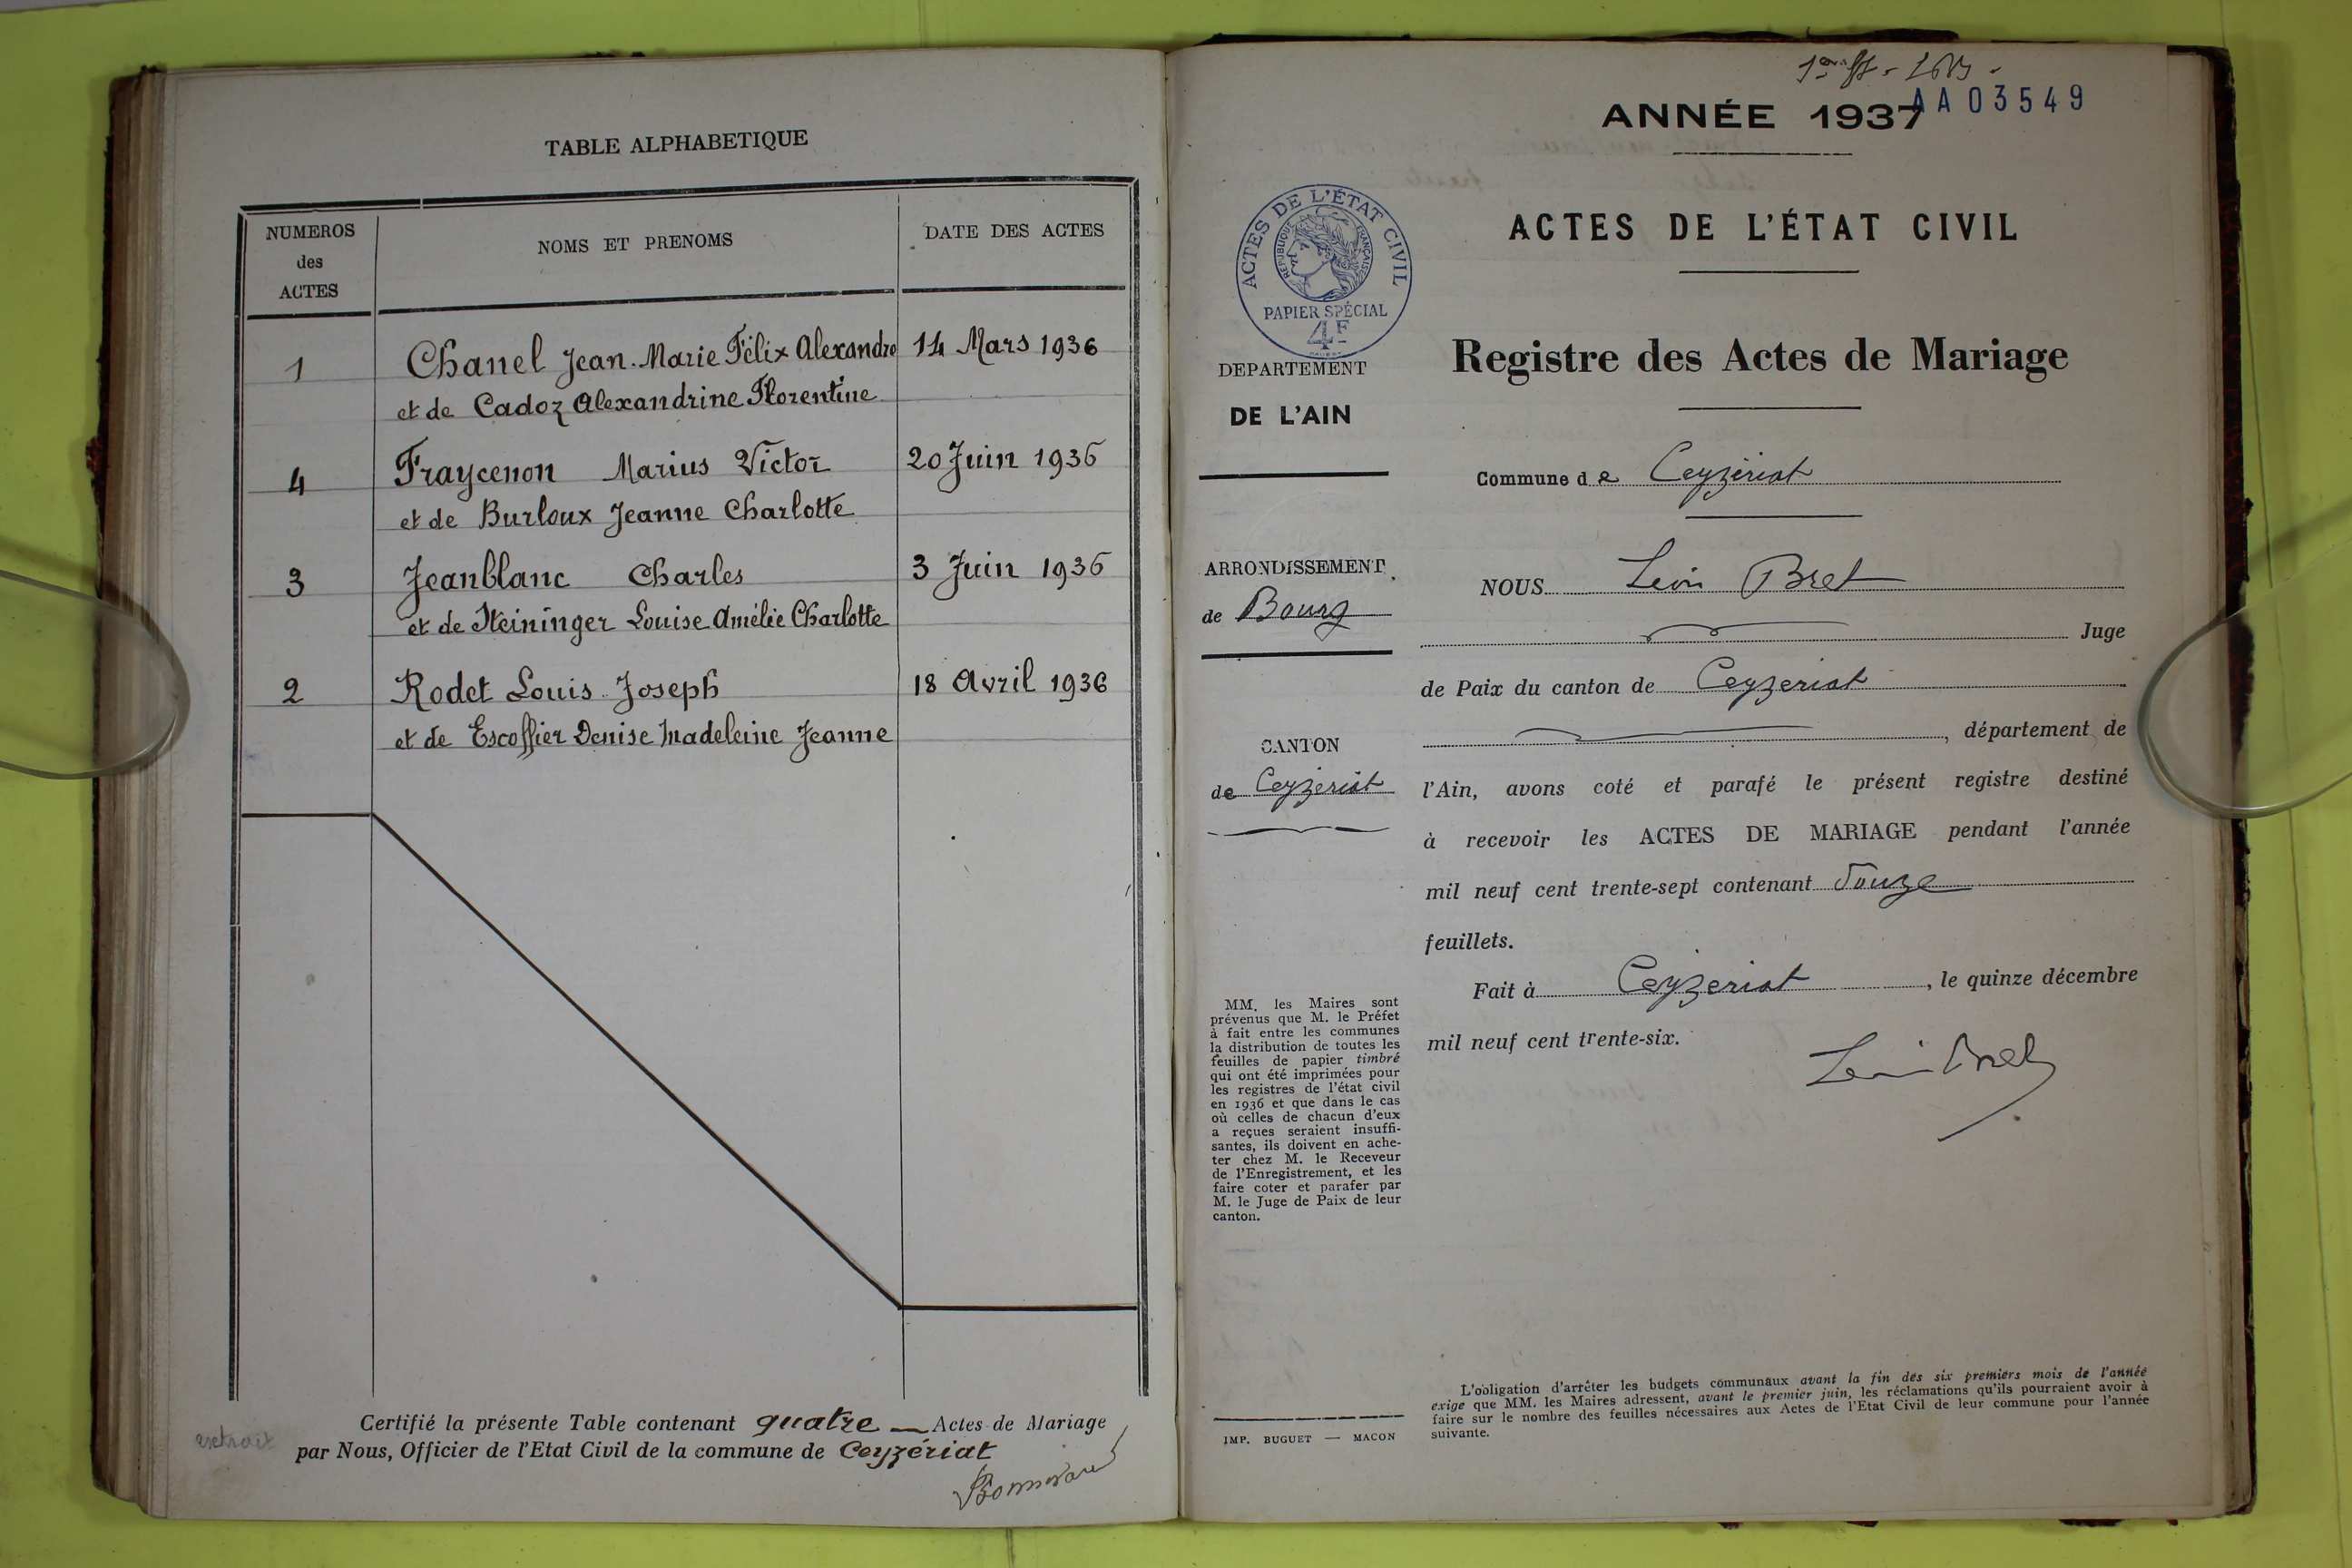 TABLE ALPHABETIQUE
NUMEROS
des
ACTES
NOMS ET PRENOMS
DATE DES ACTES
1 Chanel Jean-Marie Félix Alexandre 14 Mars 1936
et de Cadoz Alexandrine Florentine
4 Fraycenon Marius Victor 20 Juin 1936
et de Burloux Jeanne Charlotte
3 Jeanblanc Charles 3 Juin 1936
et de Steininger Louise Amélie Charlotte
2 Rodet Louis Joseph 18 Avril 1936
et de Escoffier Denise Madeleine Jeanne
Certifié la présente Table contenant quatre Actes de Mariage
par Nous, Officier de l'Etat Civil de la commune de Ceyzériat
extrait
ANNÉE 1937
AA03549
ACTES DE L'ÉTAT CIVIL
Registre des Actes de Mariage
ACTES DE L'ÉTAT CIVIL
REPUBLIQUE FRANÇAISE
PAPIER SPÉCIAL
4F
DEPARTEMENT
DE L'AIN
ARRONDISSEMENT
de Bourg
CANTON
de Ceyzeriat
MM. les Maires sont
prévenus que M. le Préfet
à fait entre les communes
la distribution de toutes les
feuilles de papier timbré
qui ont été imprimées pour
les registres de l'état civil
en 1936 et que dans le cas
où celles de chacun d'eux
a reçues seraient insuffi-
santes, ils doivent en ache-
ter chez M. le Receveur
de l'Enregistrement, et les
faire coter et parafer par
M. le Juge de Paix de leur
canton.
IMP. BUGUET — MACON
Commune de Ceyzériat
NOUS Léon Bret
Juge
de Paix du canton de Ceyzeriat
, département de
l'Ain, avons coté et parafé le présent registre destiné
à recevoir les ACTES DE MARIAGE pendant l'année
mil neuf cent trente-sept contenant douze
feuillets.
Fait à Ceyzeriat, le quinze décembre
mil neuf cent trente-six.
Léon Bret
L'obligation d'arrêter les budgets communaux avant la fin des six premiers mois de l'année
exige que MM. les Maires adressent, avant le premier juin, les réclamations qu'ils pourraient avoir à
faire sur le nombre des feuilles nécessaires aux Actes de l'Etat Civil de leur commune pour l'année
suivante.